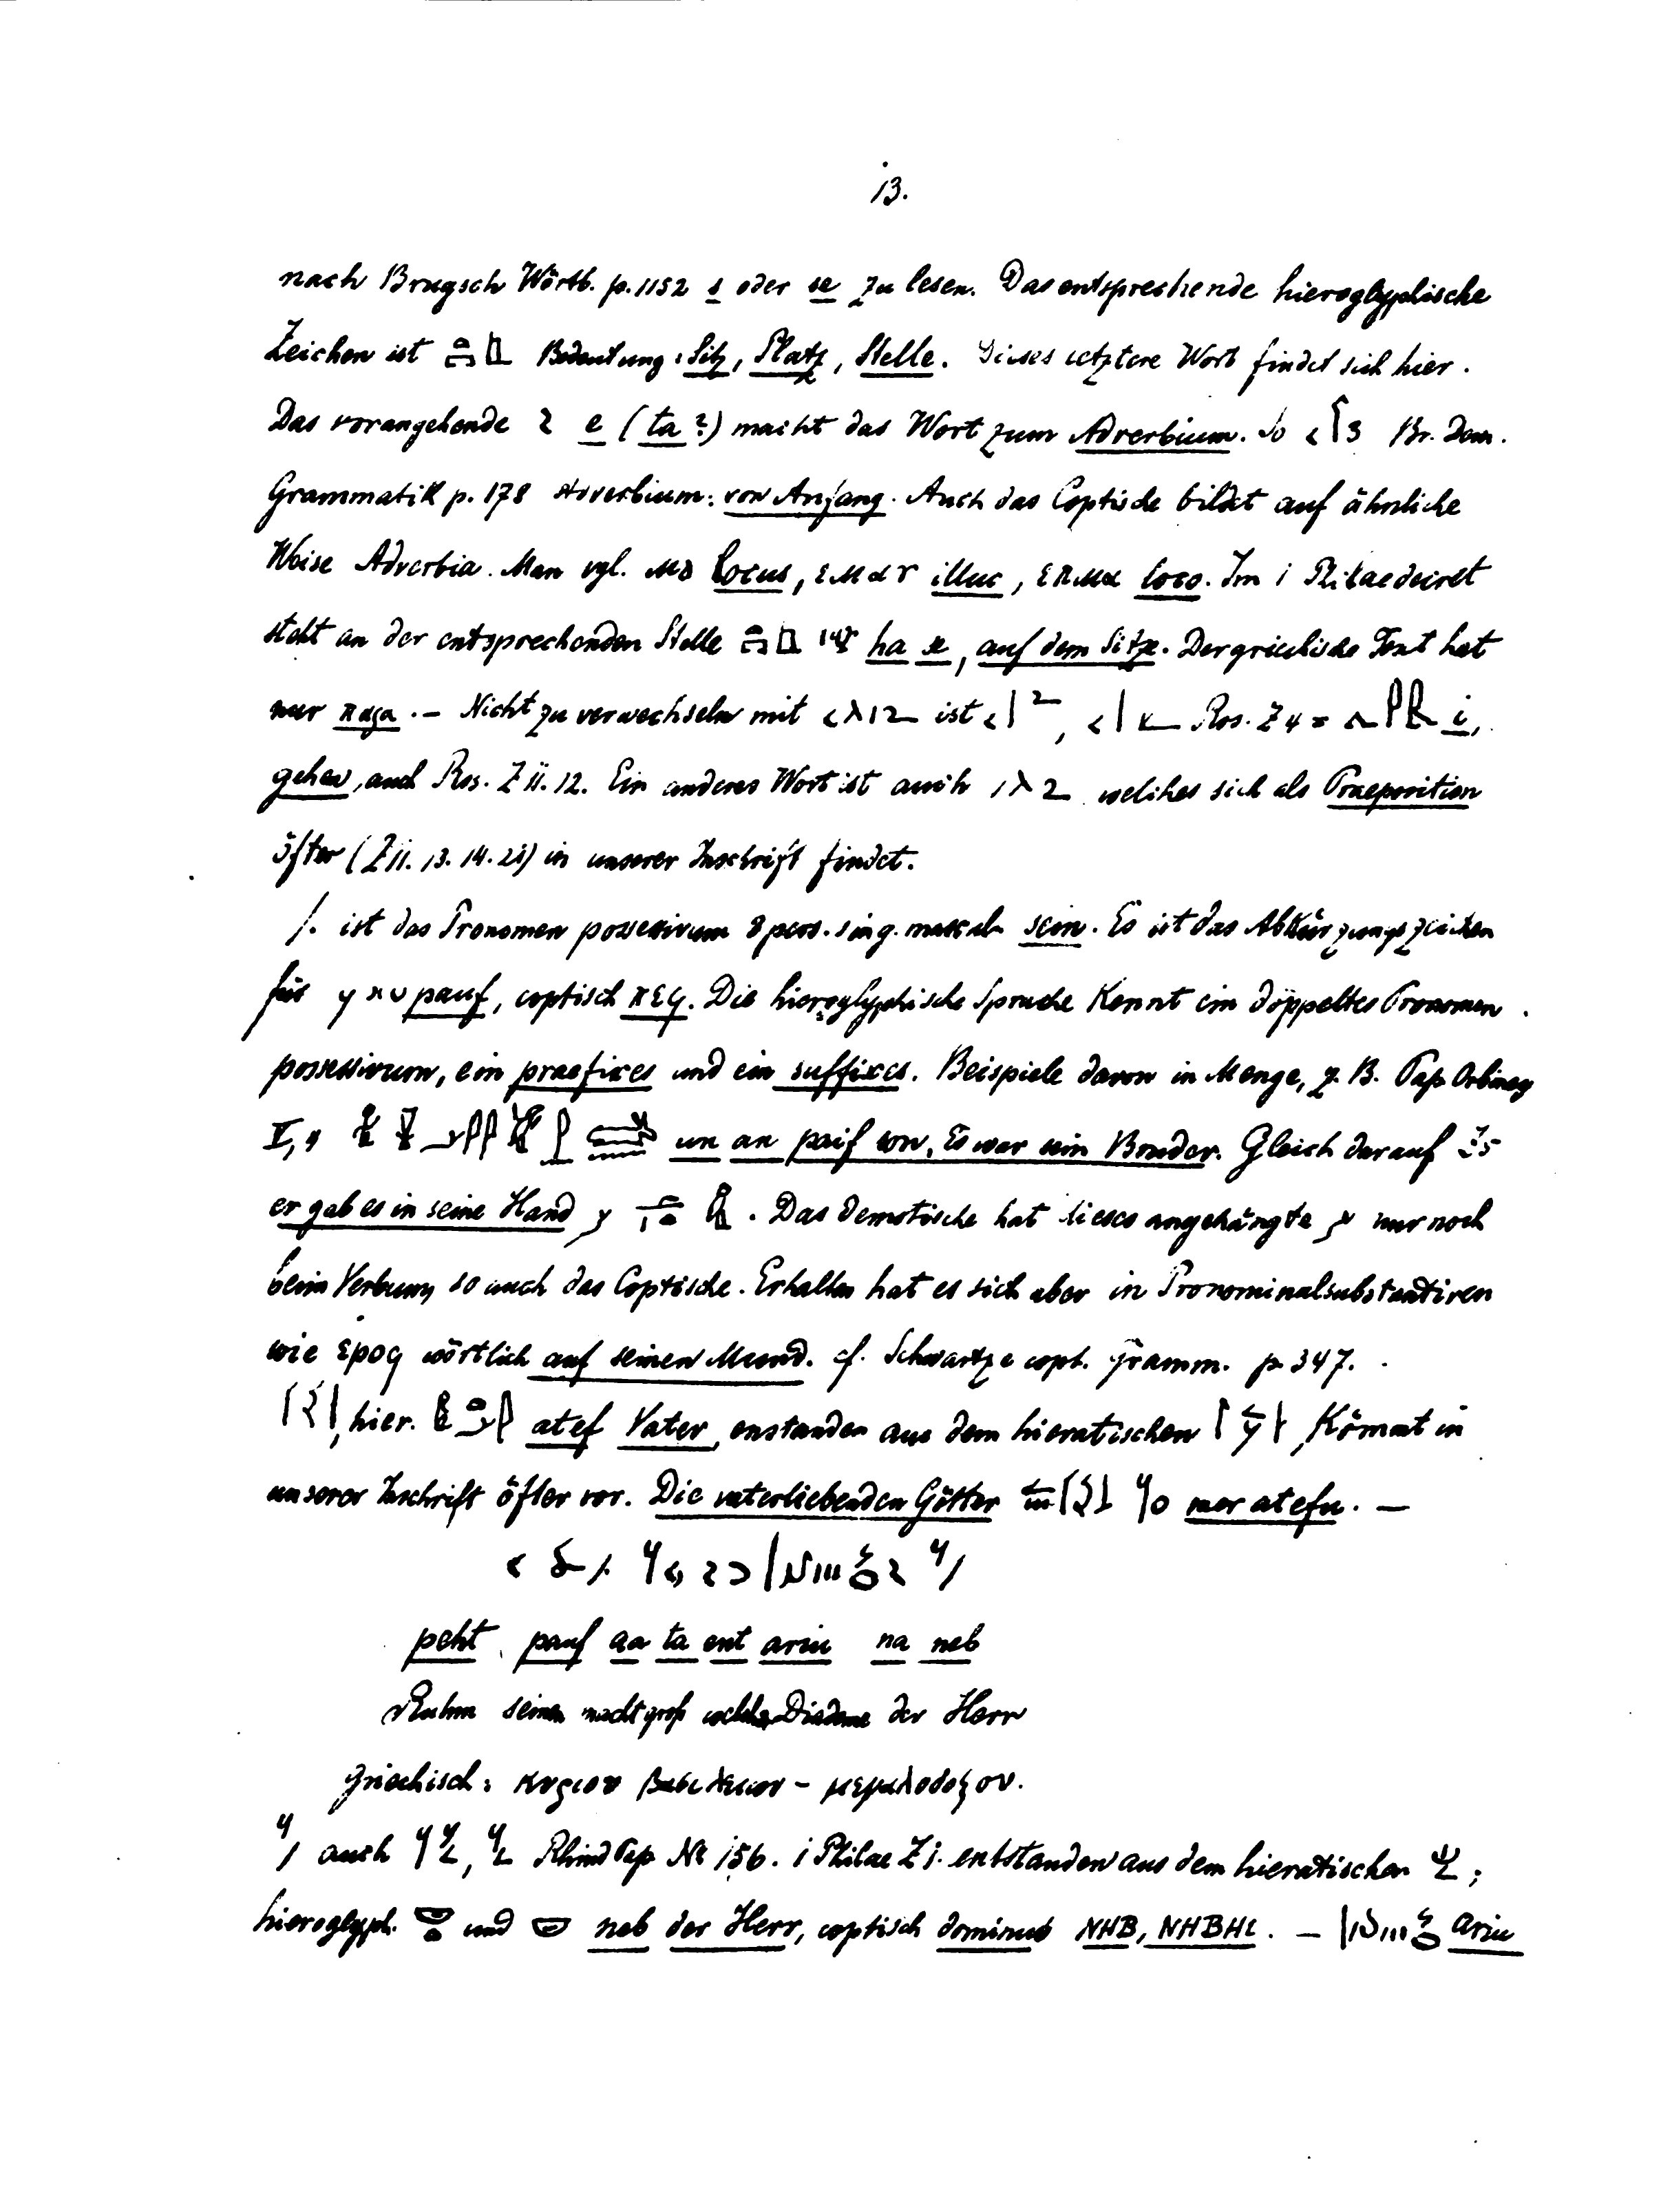 13.
nach Brugsch Wörtb. p. 1152 s oder se zu lesen. Das entsprechende hieroglyphische
Zeichen ist Bedeutung: Sitz, Platz, Stelle. Dieses letztere Wort findet sich hier.
Das vorangehende e (ta?) macht das Wort zum Adverbium. So Br. Dem.
Grammatik p. 178 Adverbium: von Anfang. Auch das Coptische bildet auf ähnliche
Weise Adverbia. Man vgl. ⲙⲁ locus, ⲉⲙⲁⲩ illuc, ⲉⲡⲙⲁ loco. Im i Philaedecret
steht an der entsprechenden Stelle ha se, auf dem Sitze. Der griechische Text hat
nur παρα. – Nicht zu verwechseln mit ist , Ros. Z 4 = i,
gehen, auch Ros. Z 11. 12. Ein anderes Wort ist auch welches sich als Praeposition
öfter (Z 11. 13. 14. 21) in unserer Inschrift findet.
/. ist das Pronomen possessivum 3 pers. sing. mascul. sein. Es ist das Abkürzungszeichen
für pauf, coptisch ⲡⲉϥ. Die hieroglyphische Sprache Kennt ein doppeltes Pronomen
possessivum, ein praefixes und ein suffixes. Beispiele davon in Menge, z. B. Pap Orbiney
un an paif son, Es war sein Bruder. Gleich darauf Z5
er gab es in seine Hand . Das Demotische hat dieses angehängte nur noch
beim Verbum, so auch das Coptische. Erhalten hat es sich aber in Pronominalsubstantiven
wie ⲉⲣⲟϥ wörtlich auf seinen Mund. cf. Schwartze copt. Gramm. p. 347.
, hier. atef Vater, enstanden aus dem hieratischen , Kömmt in
unserer Inschrift öfter vor. Die vaterliebenden Götter mer atefu. —
peht pauf aa ta ent ariu na neb
Ruhm seinen macht groß welcher Diademe der Herr
Griechisch: κυριου βασιλειων – μεγαλοδοξου.
auch , Rhind Pap № 156. i Philae Z 1. entstanden aus dem hieratischen ;
hieroglyph. und neb der Herr, coptisch dominus ⲚⲎⲂ, ⲚⲎⲂⲎⲒ. — ariu